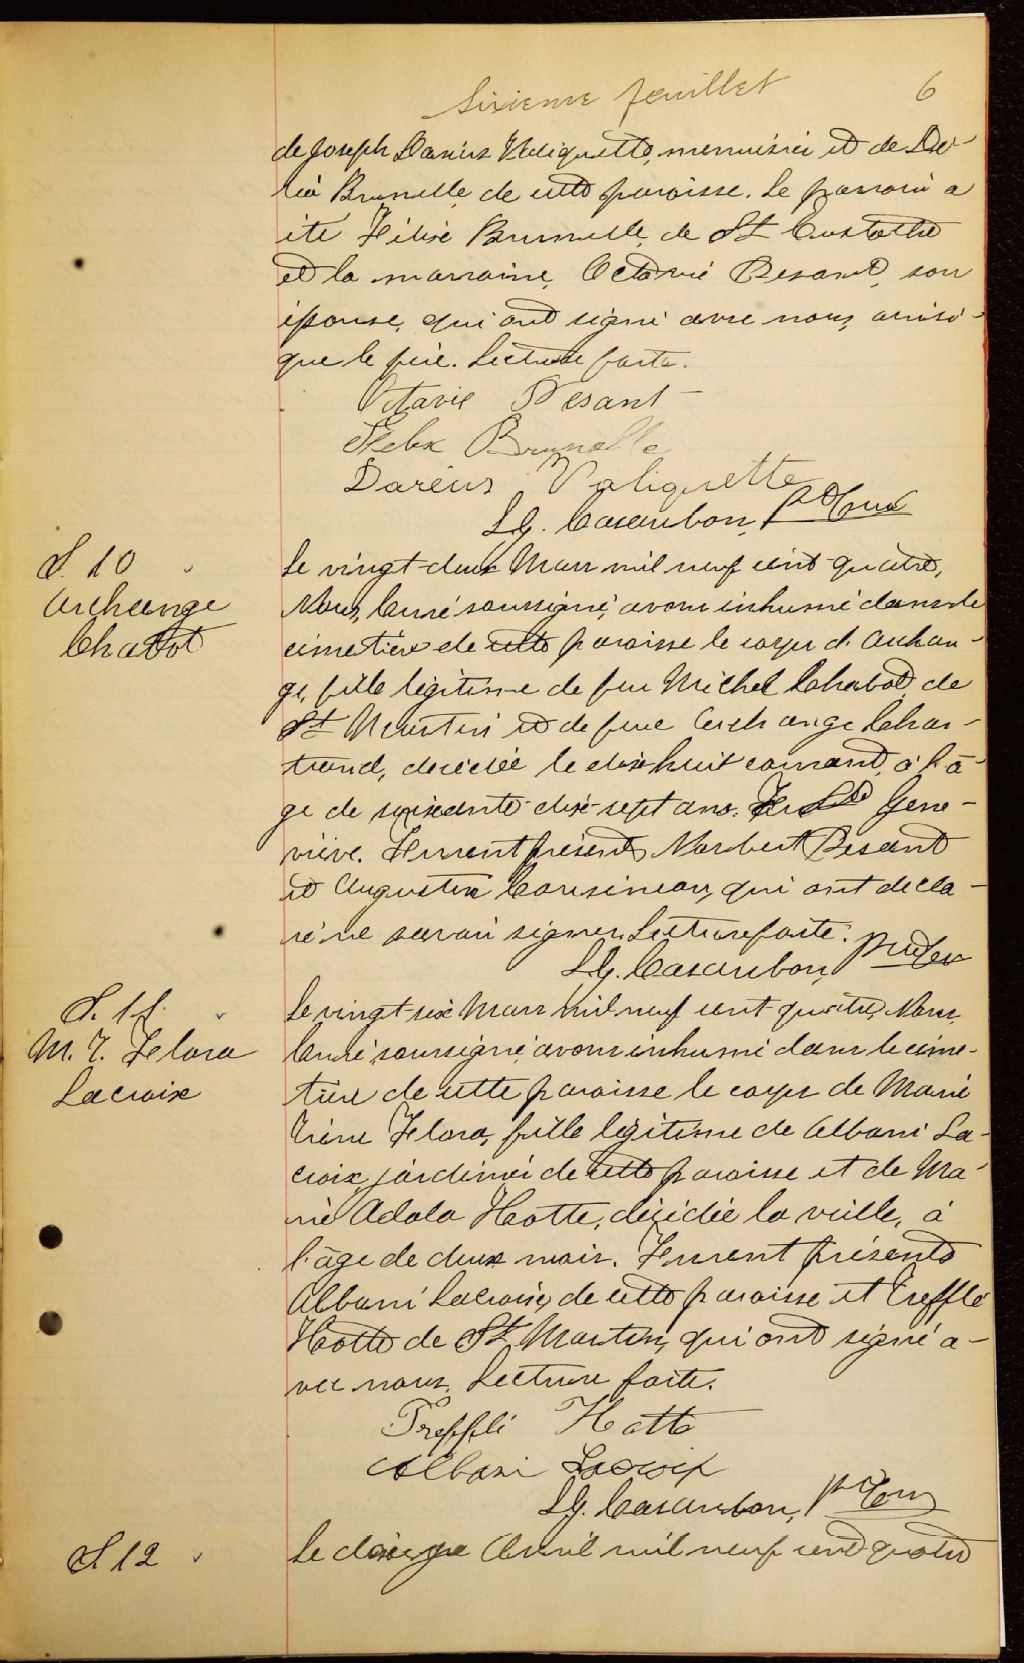 Sixieme feuillet 6
de Joseph Darius Valiquette, menuisier et de De-
lia Brunelle, de cette paroisse. Le parrain a
été Félix Brunelle, de St Eustache
et la marraine, Octavie Besant, son
épouse, qui ont signé avec nous, ainsi
que le père. Lecture faite.
Octavie Besant
Felix Brunelle
Dareius Valiquette
L.G. Casaubon, ptre Curé
S. 10
Archange
Chabot
Le vingt-deux Mars mil neuf cent-quatre,
Nous, Curé soussigné, avons inhumé dans le
cimetière de cette paroisse le corps d'Archan-
ge, fille légitime de feu Michel Chabot, de
St Martin et de feue Archange Char-
trand, décédée le dix-huit courant, à l'â-
ge de soixante-dix-sept ans. Ste Gene-
viève. Furent présents, Norbert Besant
et Augustin Cousineau, qui ont décla-
ré ne savoir signer. Lecture faite.
L.G. Casaubon, ptre Cu
S. 11.
M. I. Flora
Lacroix
Le vingt-six Mars mil neuf cent quatre, Nous,
Curé soussigné, avons inhumé dans le cime-
tière de cette paroisse le corps de Marie
Irène Flora, fille légitime de Albani La-
croix, jardinier de cette paroisse et de Ma-
rie Adola Hotte, décédée la veille, à
l'âge de deux mois. Furent présents
Albani Lacroix, de cette paroisse et Trefflé
Hotte de St Martin, qui ont signé a-
vec nous. Lecture faite.
Treffli Hotte
Albani Lacroix
L.G. Casaubon, ptre Curé
S 12
Le Avril mil neuf cent quatre